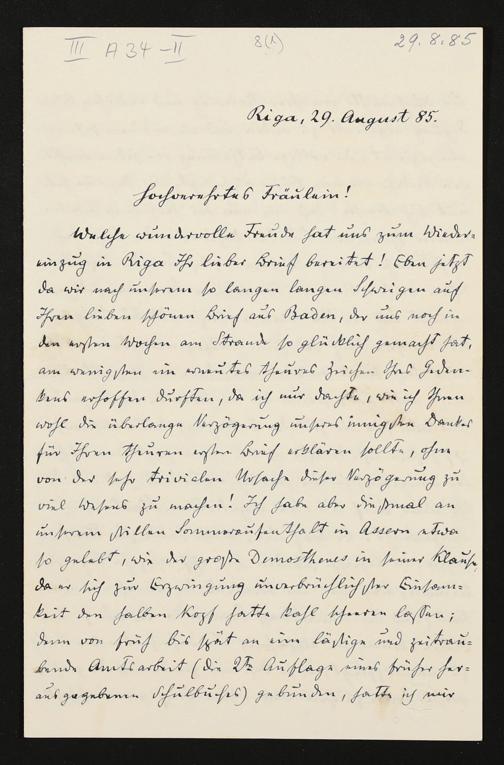 III A 34 - II 8(1) 29.8.85
Riga, 29. August 85.
Hochverehrtes Fräulein!
Welche wundervolle Freude hat uns zum Wieder-
einzug in Riga Ihr lieber Brief bereitet! Eben jetzt
da wir nach unserem so langen langen Schweigen auf
Ihren lieben schönen Brief aus Baden, der uns noch in
den ersten Wochen am Strande so glücklich gemacht hat,
am wenigsten ein erneutes theures Zeichen Ihres Geden-
kens erhoffen durften, da ich nur dachte, wie ich Ihnen
wohl die überlange Verzögerung unseres innigsten Dankes
für Ihren theuren ersten Brief erklären sollte, ohne
von der sehr trivialen Ursache dieser Verzögerung zu
viel Wesens zu machen! Ich habe aber diesmal an
unserem stillen Sommeraufenthalt in Assern etwa
so gelebt, wie der große Demosthenes in seiner Klause,
da er sich zur Erzwingung unverbrüchlichster Einsam-
keit den halben Kopf hatte kahl scheeren lassen;
denn von früh bis spät an eine lästige und zeitrau-
bende Amtsarbeit (die 2te Auflage eines früher her-
ausgegebenen Schulbuches) gebunden, hatte ich mir